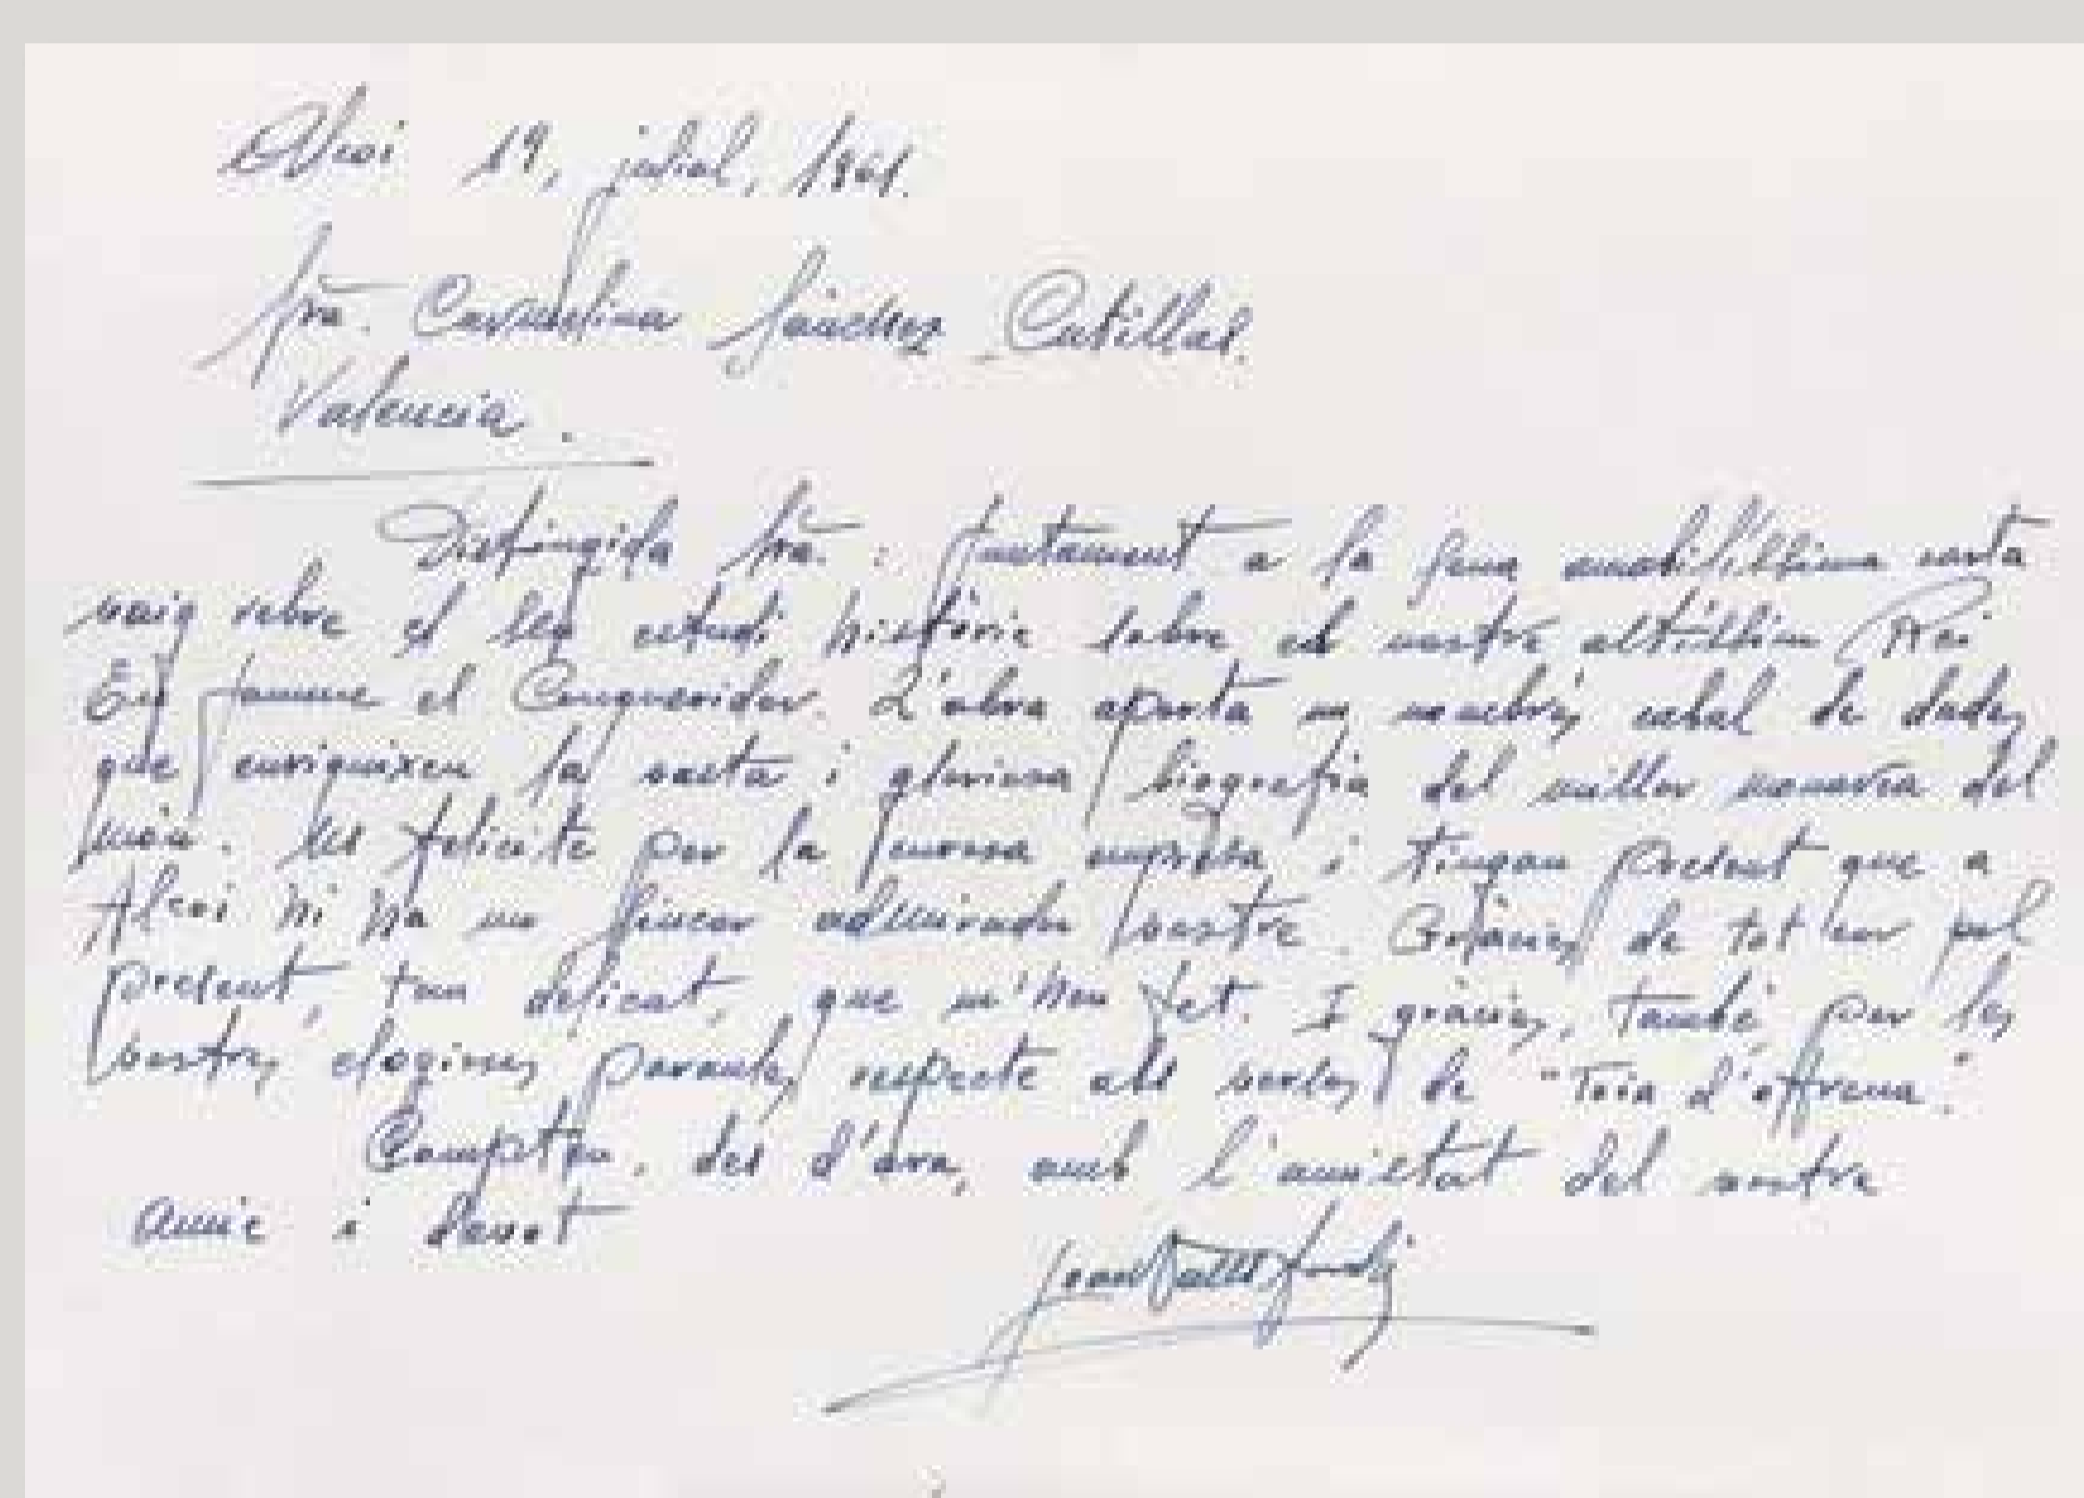 Alcoi 19, juliol, 1961.
Sra. Carmelina Sánchez Cutillas.
Valencia.
Distingida Sra.: Juntament a la seua amabilíssima carta
vaig rebre el seu estudi històric sobre el nostre altíssim Rei
En Jaume el Conqueridor. L'obra aporta un nombrós cabal de dades
que enriquixen la vasta i gloriosa biografia del millor monarca del
món. Us felicite per la seua empresa i tingau present que a
Alcoi hi ha un sincer admirador vostre. Gràcies de tot cor pel
present, tan delicat, que m'heu fet. I gràcies, també, per les
vostres elogioses paraules respecte als versos de "Toia d'offrena".
Compteu, des d'ara, amb l'amistat del vostre
amic i devot
Joan Valls Jordà